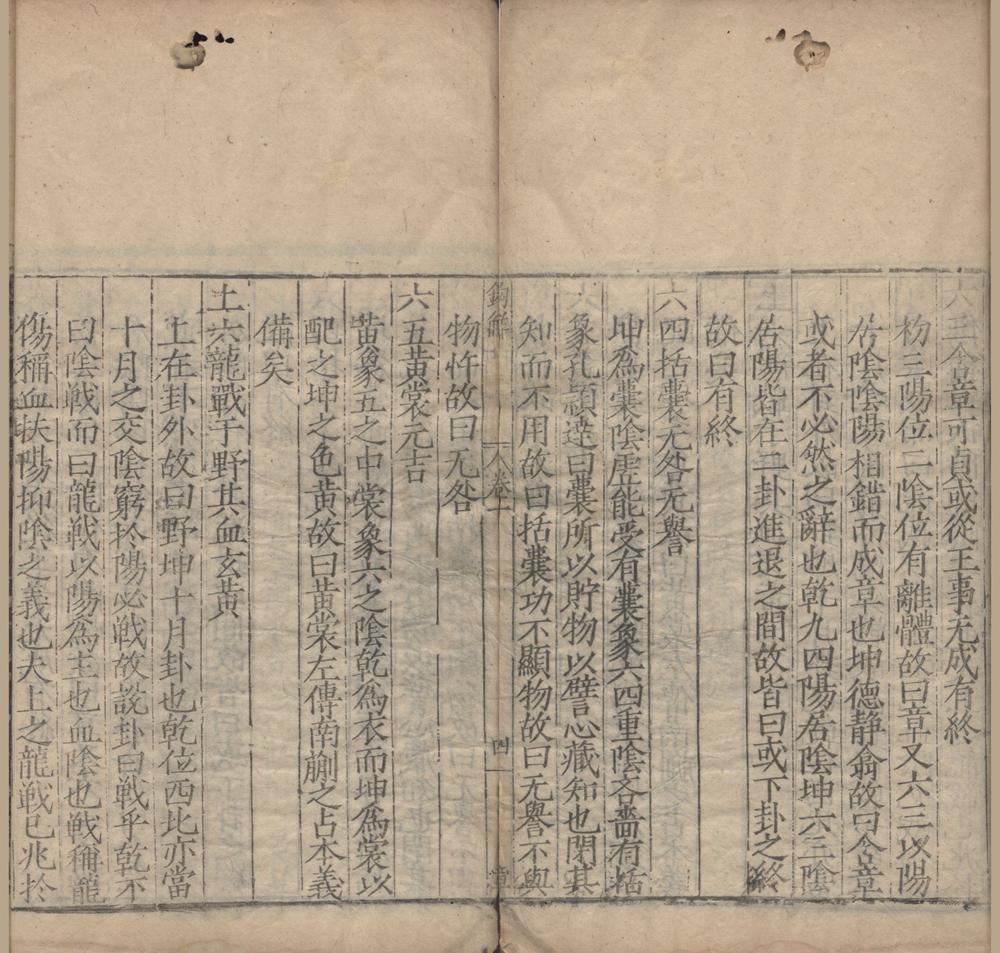 六三含章可貞或從王事无成有終
初三陽位二陰位有離體故曰章又六三以陽
居陰陰陽相錯而成章也坤德静翕故曰含章
或者不必然之辭也乾九四陽居陰坤六三陰
居陽皆在二卦進退之間故皆曰或下卦之終
故曰有終
六四括囊无咎无譽
坤為囊陰虚能受有囊象六四重陰吝嗇有括
象孔頴逹曰囊所以貯物以譬心藏知也閉其
知而不用故曰括囊功不顯物故曰无譽不與
鈎解
卷一
四
章
物忤故曰无咎
六五黄裳元吉
黄象五之中裳象六之陰乾為衣而坤為裳以
配之坤之色黄故曰黄裳左傳南蒯之占本義
備矣
上六龍戰于野其血玄黄
上在卦外故曰野坤十月卦也乾位西北亦當
十月之交陰窮於陽必戦故說卦曰戦乎乾不
曰陰戦而曰龍戦以陽為主也血陰也戦稱龍
傷稱血扶陽抑陰之義也夫上之龍戦已兆於